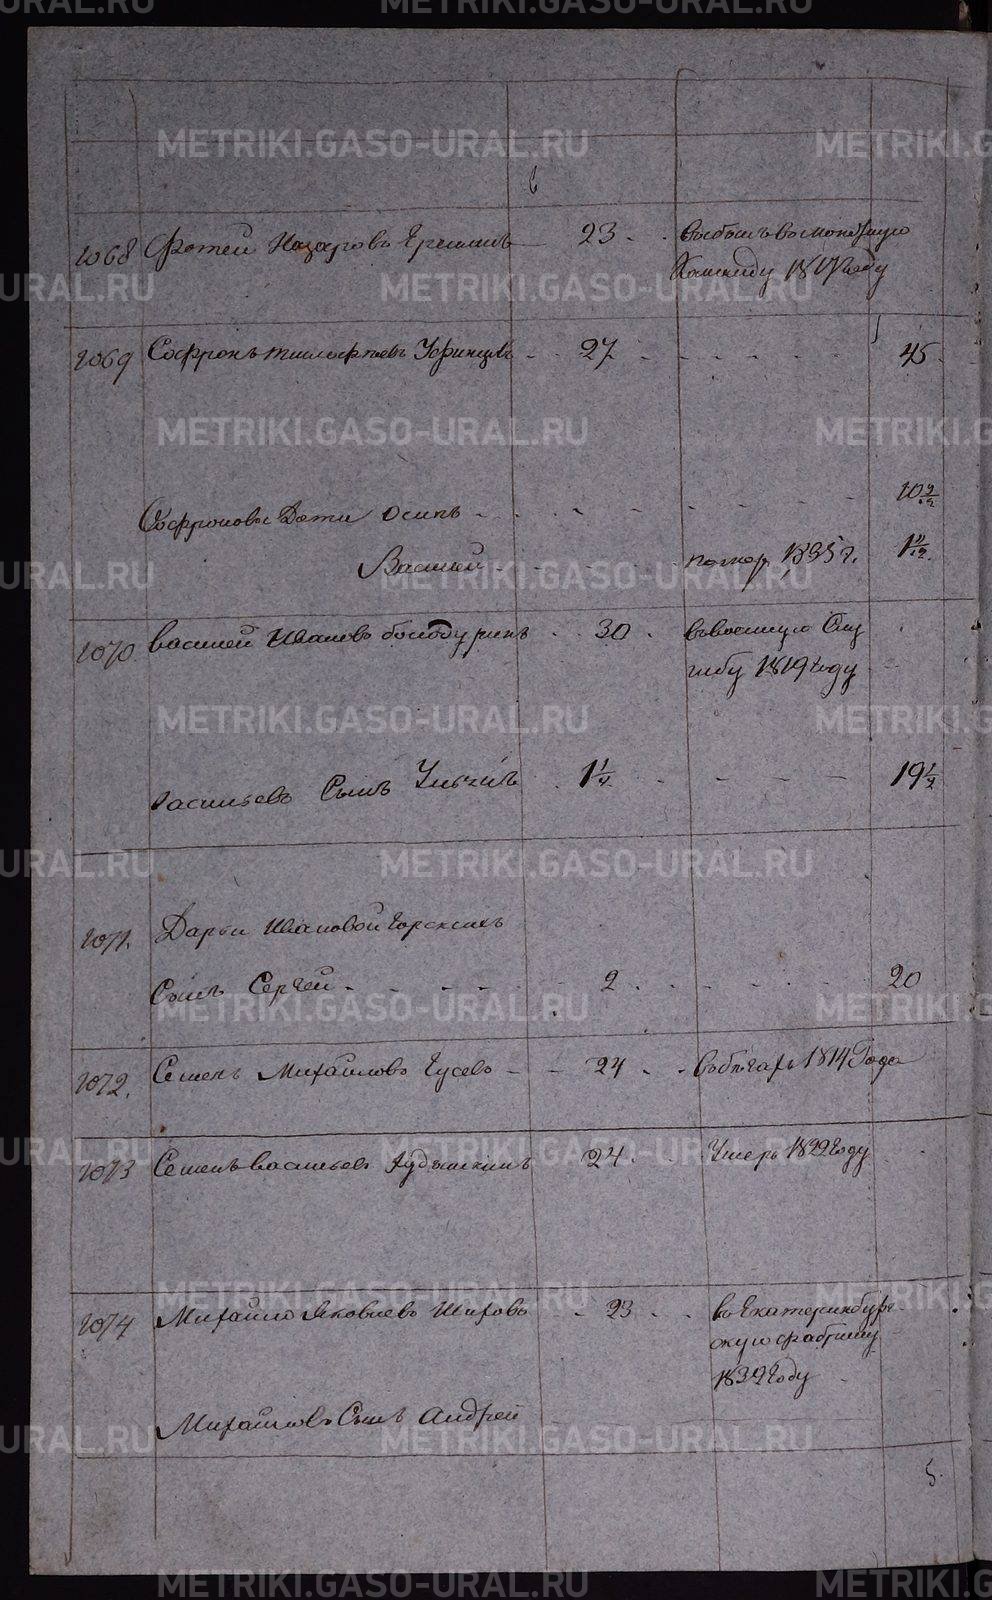 METRIKI.GASO-URAL.RU
6
1068 Фотей Назаровъ 23
1817 году
1069 Софронъ 27 45
Софроновы Дети Осипъ 10 9/12
Василей помер 1835 г. 1 11/12
1070 Василей Ивановъ 30 въ военную Слу
жбу 1819 году
Васильевъ Сынъ 1 1/4 19 1/4
1071. Дарьи Ивановой Горскихъ
Сынъ Сергей 2 20
1072. Семенъ Михайловъ Гусевъ 24 въ бегахъ 1814 Года
1073 Семенъ Васильевъ 24 Умеръ 1822 году
1074 Михайло Яковлевъ Шировъ 23 въ Екатеринбург
скую фабрику
1832 году
Михайловъ Сынъ Андрей
5.